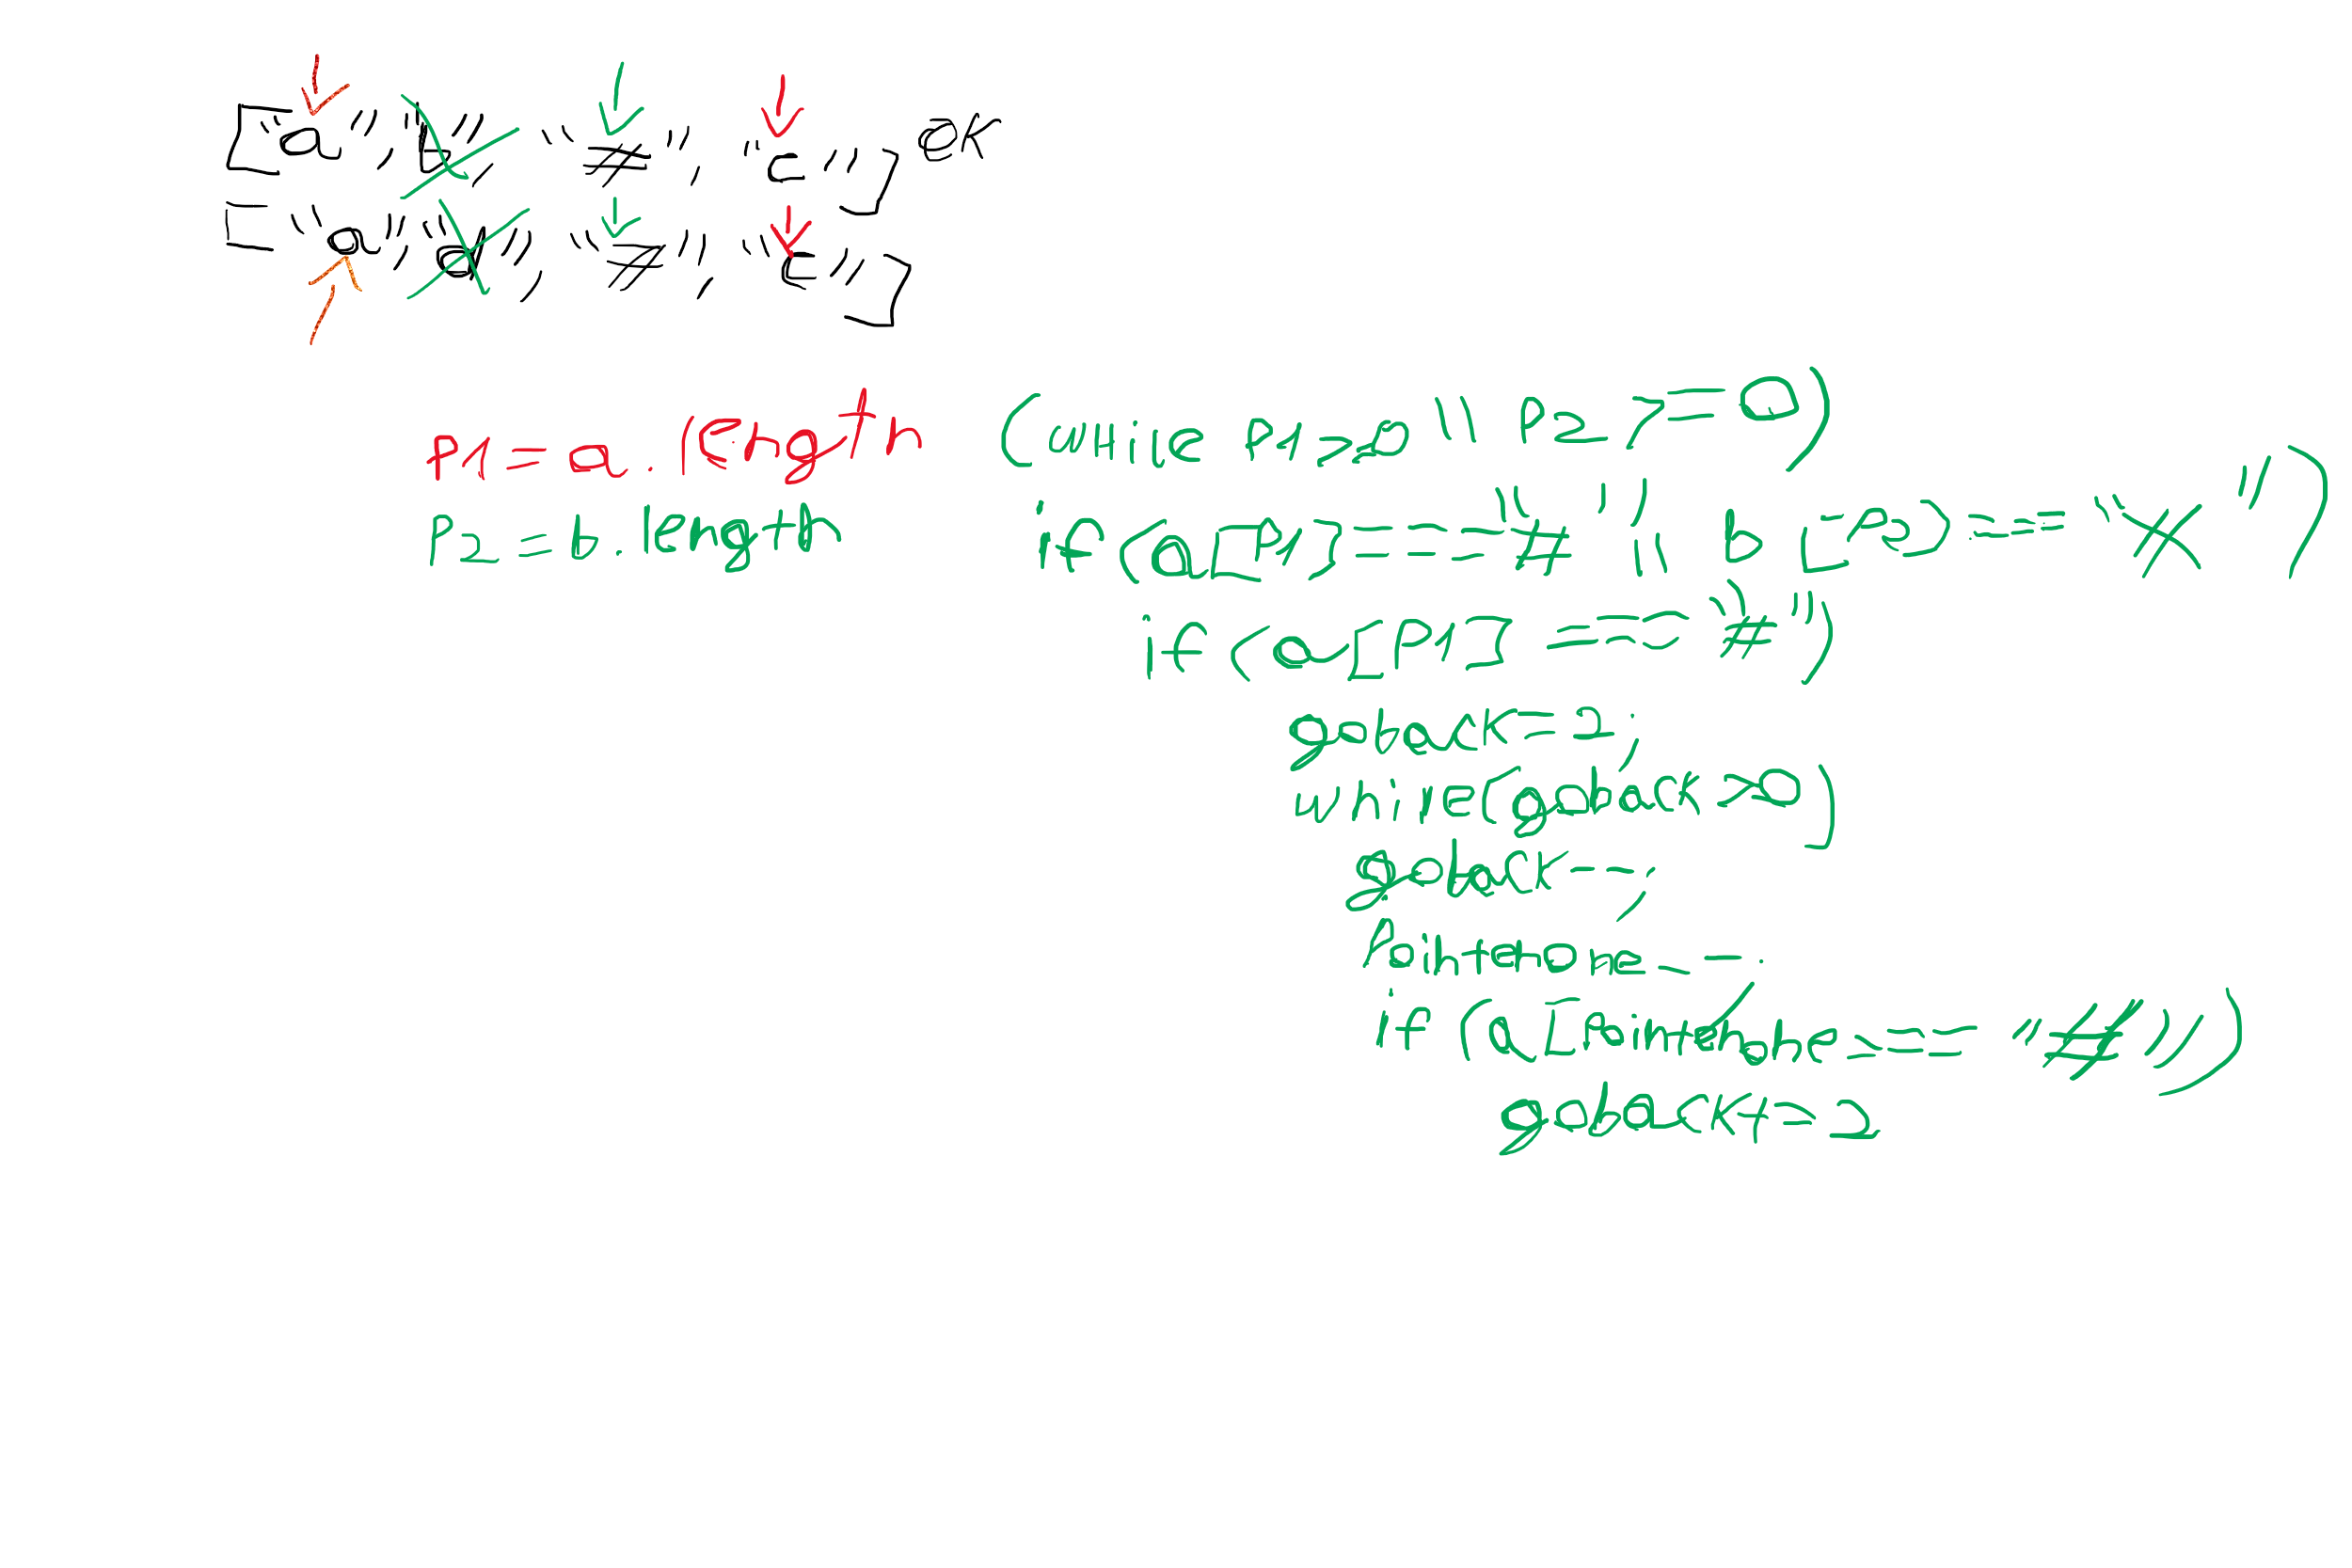 ["a", "b", "#", "c"] ok
["a", "d", "#", "c"]
P1 = a.length
P2 = b.length
(while P1 >= 0 || P2 >= 0)
if (a[P1] === "#" || b[P2] === "#")
if (a[P1] === "#")
goback = 2;
while (goback > 0)
goback--;
Pointerone--;
if (a[Pointerone === "#"))
goback += 2